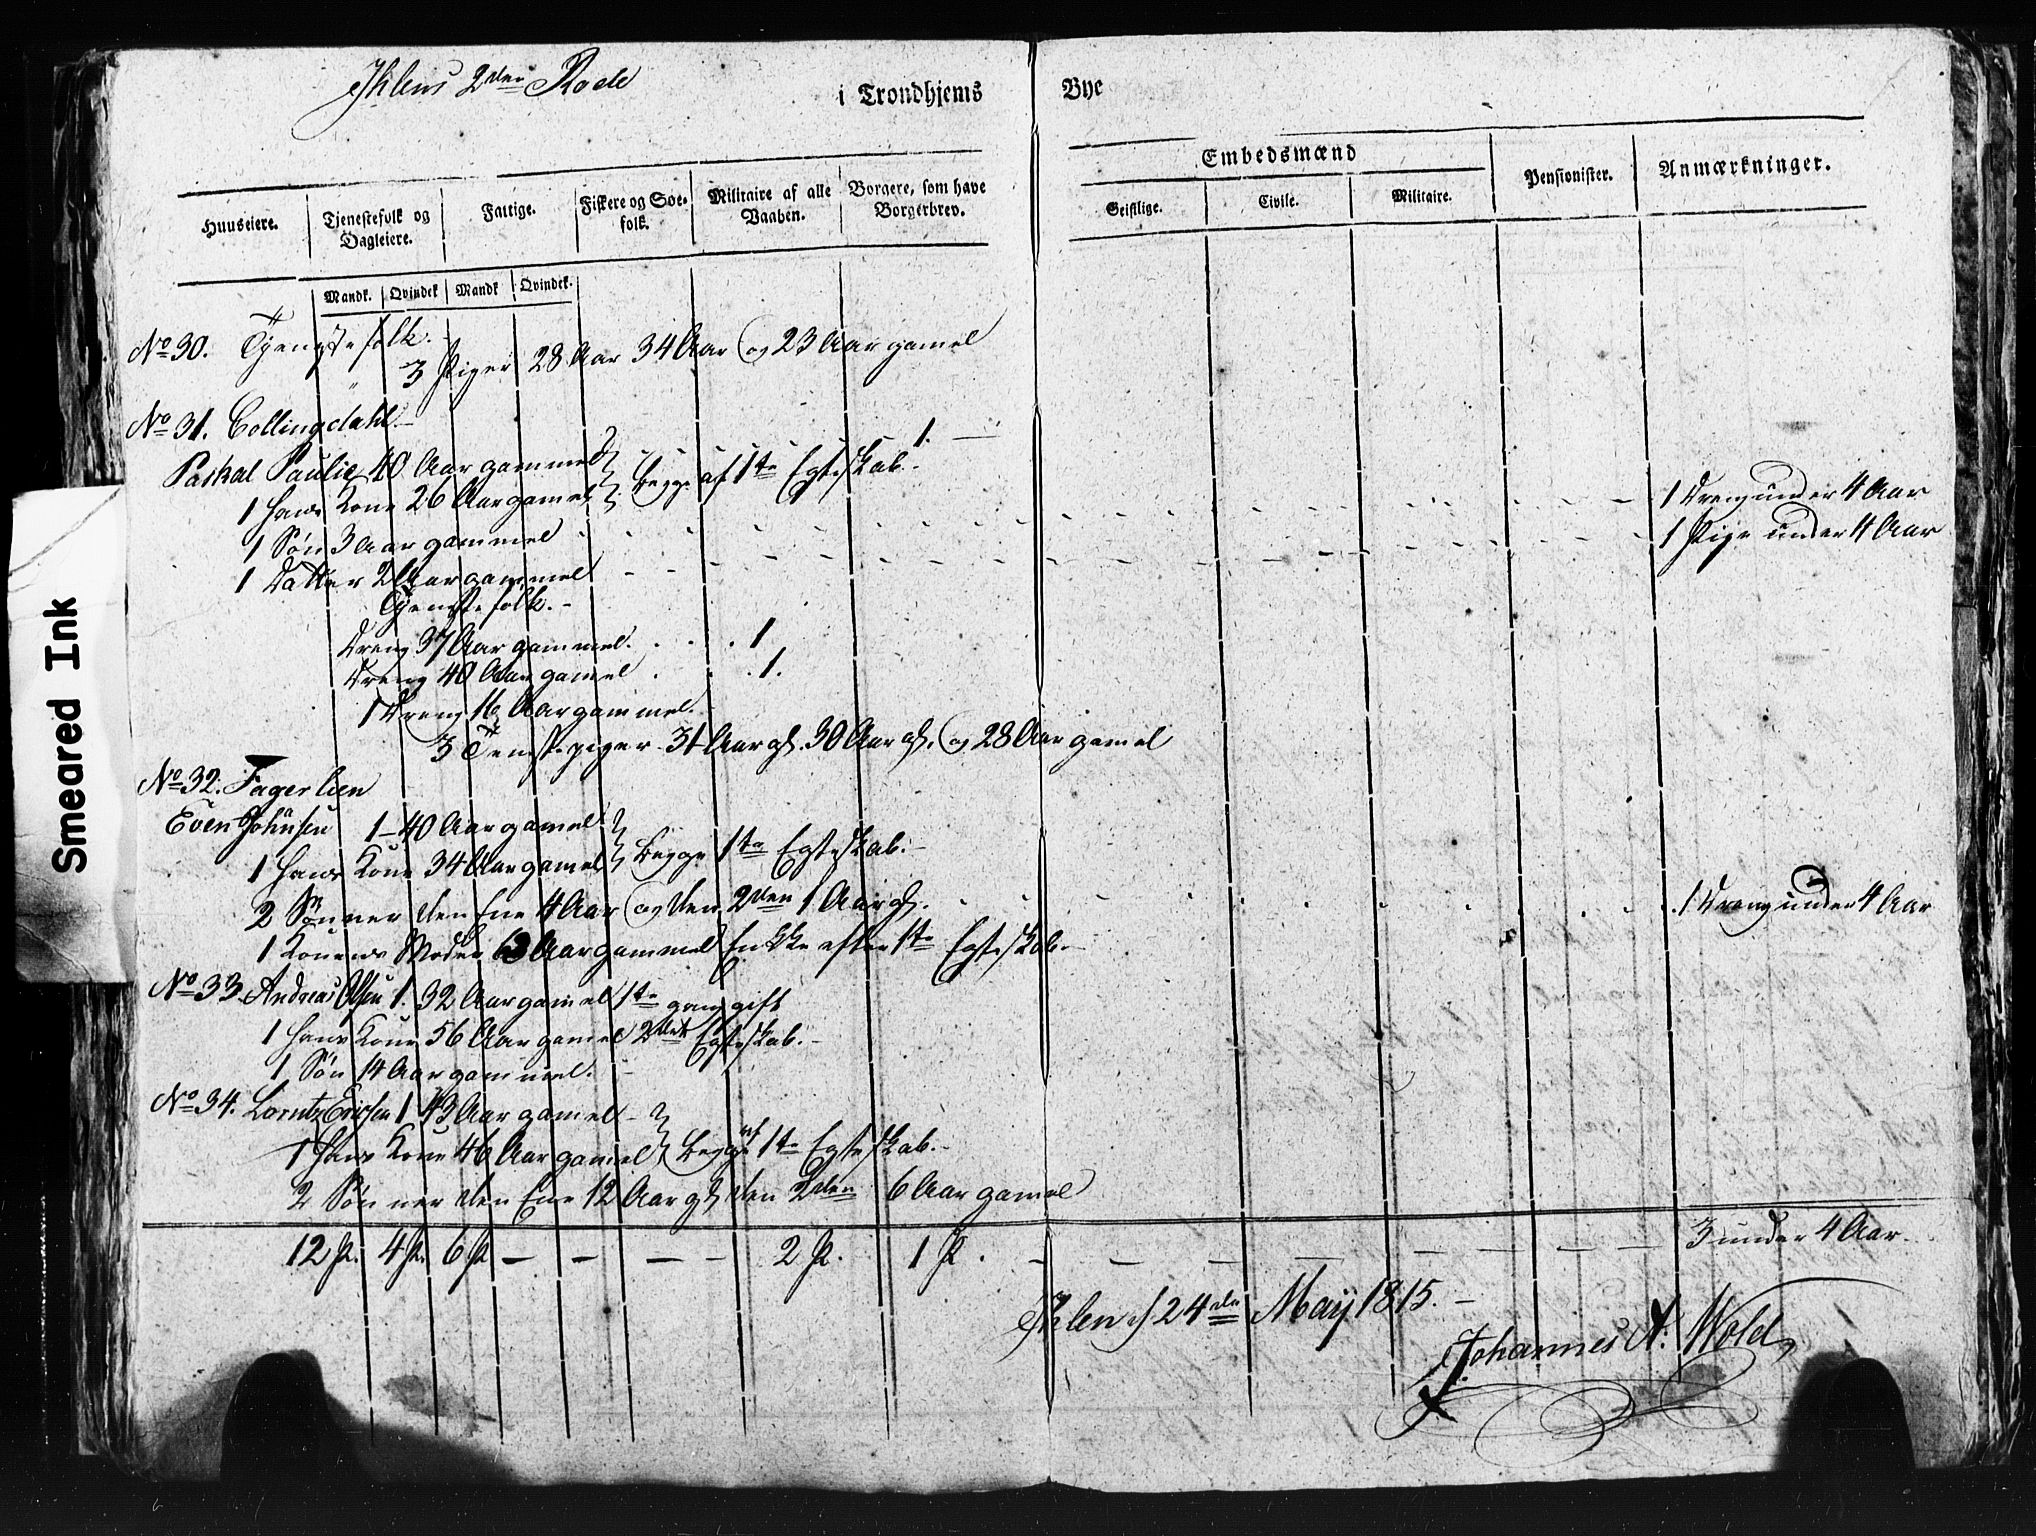 Ihlens 2den Rode
i Trondhjems Bye
Huuseiere. Tjenestefolk og Dagleiere. Fattige. Fiskere og Søefolk. Militaire af alle Vaaben. Borgere, som have Borgerbrev. Embedsmænd Geistlige. Civile. Militaire. Pensionister. Anmærkninger.
Mandk. Qvindek Mandk Qvindek.
No 30. Tjenstefolk.
3 Piger 28 Aar 34 Aar og 23 Aar gamel
No 31. Collingdahl - 1. -
Paskal Paulie 40 Aar gammel
1 Hans Kone 26 Aar gamel Begge af 1te Egteskab.-
1 Søn 3 Aar gammel - 1 Dreng under 4 Aar
1 Datter 2 Aar gammel - 1 Pige under 4 Aar
Tjenstefolk.-
Dreng 37 Aar gammel. 1
Dreng 40 Aar gamel 1.
1 Dreng 16 Aar gammel.
3 Tienstepiger 31 Aar gl. 30 Aar gl. og 28 Aar gamel
No 32. Fagerlien
Even Johnsen 1 - 40 Aar gamel
1 Hans Kone 34 Aar gamel Begge 1te Egteskab.-
2 Sønner den Ene 4 Aar og den 2den 1 Aar gl. 1 Dreng under 4 Aar
1 Konens Moder 63 Aar gammel Enkke efter 1te Egteskab.-
No 33 Andreas Olsen 1. 32 Aar gamel 1te gang gift
1 Hans Kone 56 Aar gamel 2det Egteskab.-
1 Søn 14 Aar gammel. -
No 34. Lorntz Ericsen 1 43 Aar gamel -
1 Hans Kone 46 Aar gamel Begge af 1te Egteskab.-
2 Sønner den Ene 12 Aar gl den 2den 6 Aar gamel
12 P. 4 P. 6 P - - - - 2 P. 1 P. - - - - - - - 3 under 4 Aar.
Ihlen d 24de Maij 1815. -
Johannes A. Wold
Smeared Ink